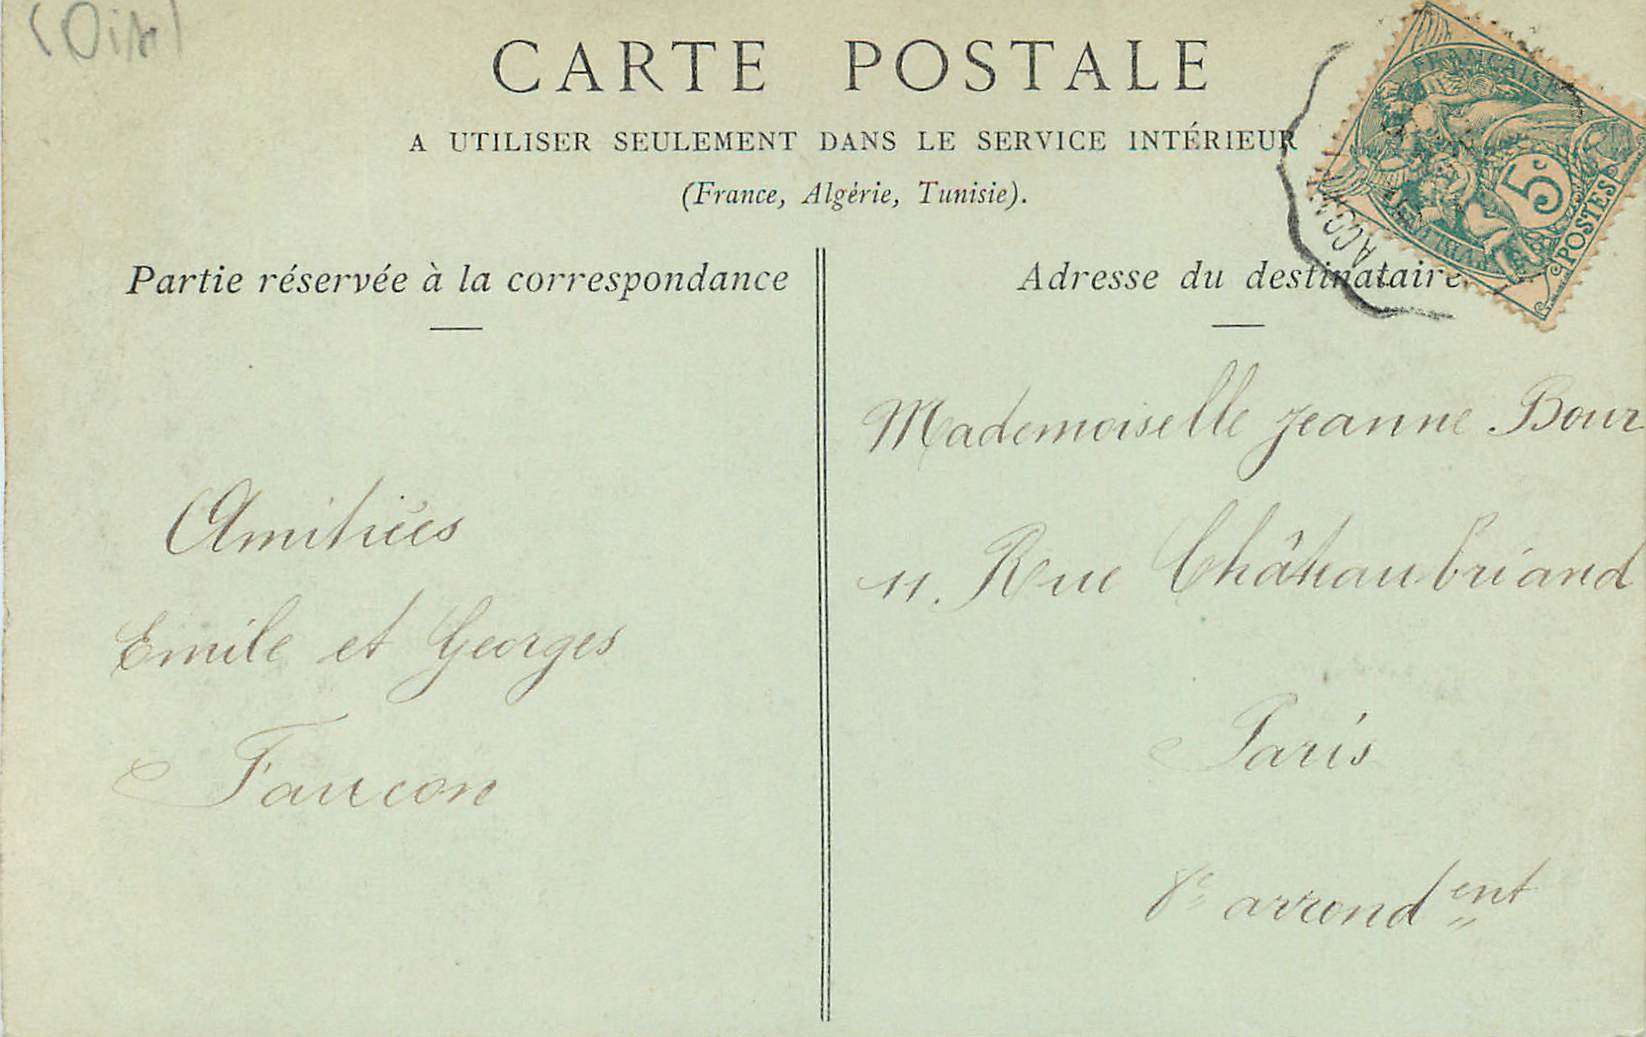 (Oise)
CARTE POSTALE
A UTILISER SEULEMENT DANS LE SERVICE INTÉRIEUR
(France, Algérie, Tunisie).
Partie réservée à la correspondance
Amitiées
Emile et Georges
Faucon
Adresse du destinataire.
Mademoiselle Jeanne Bour
11. Rue Châteaubriand
Paris
8e arrondent
FRANÇAISE
5c
POSTES